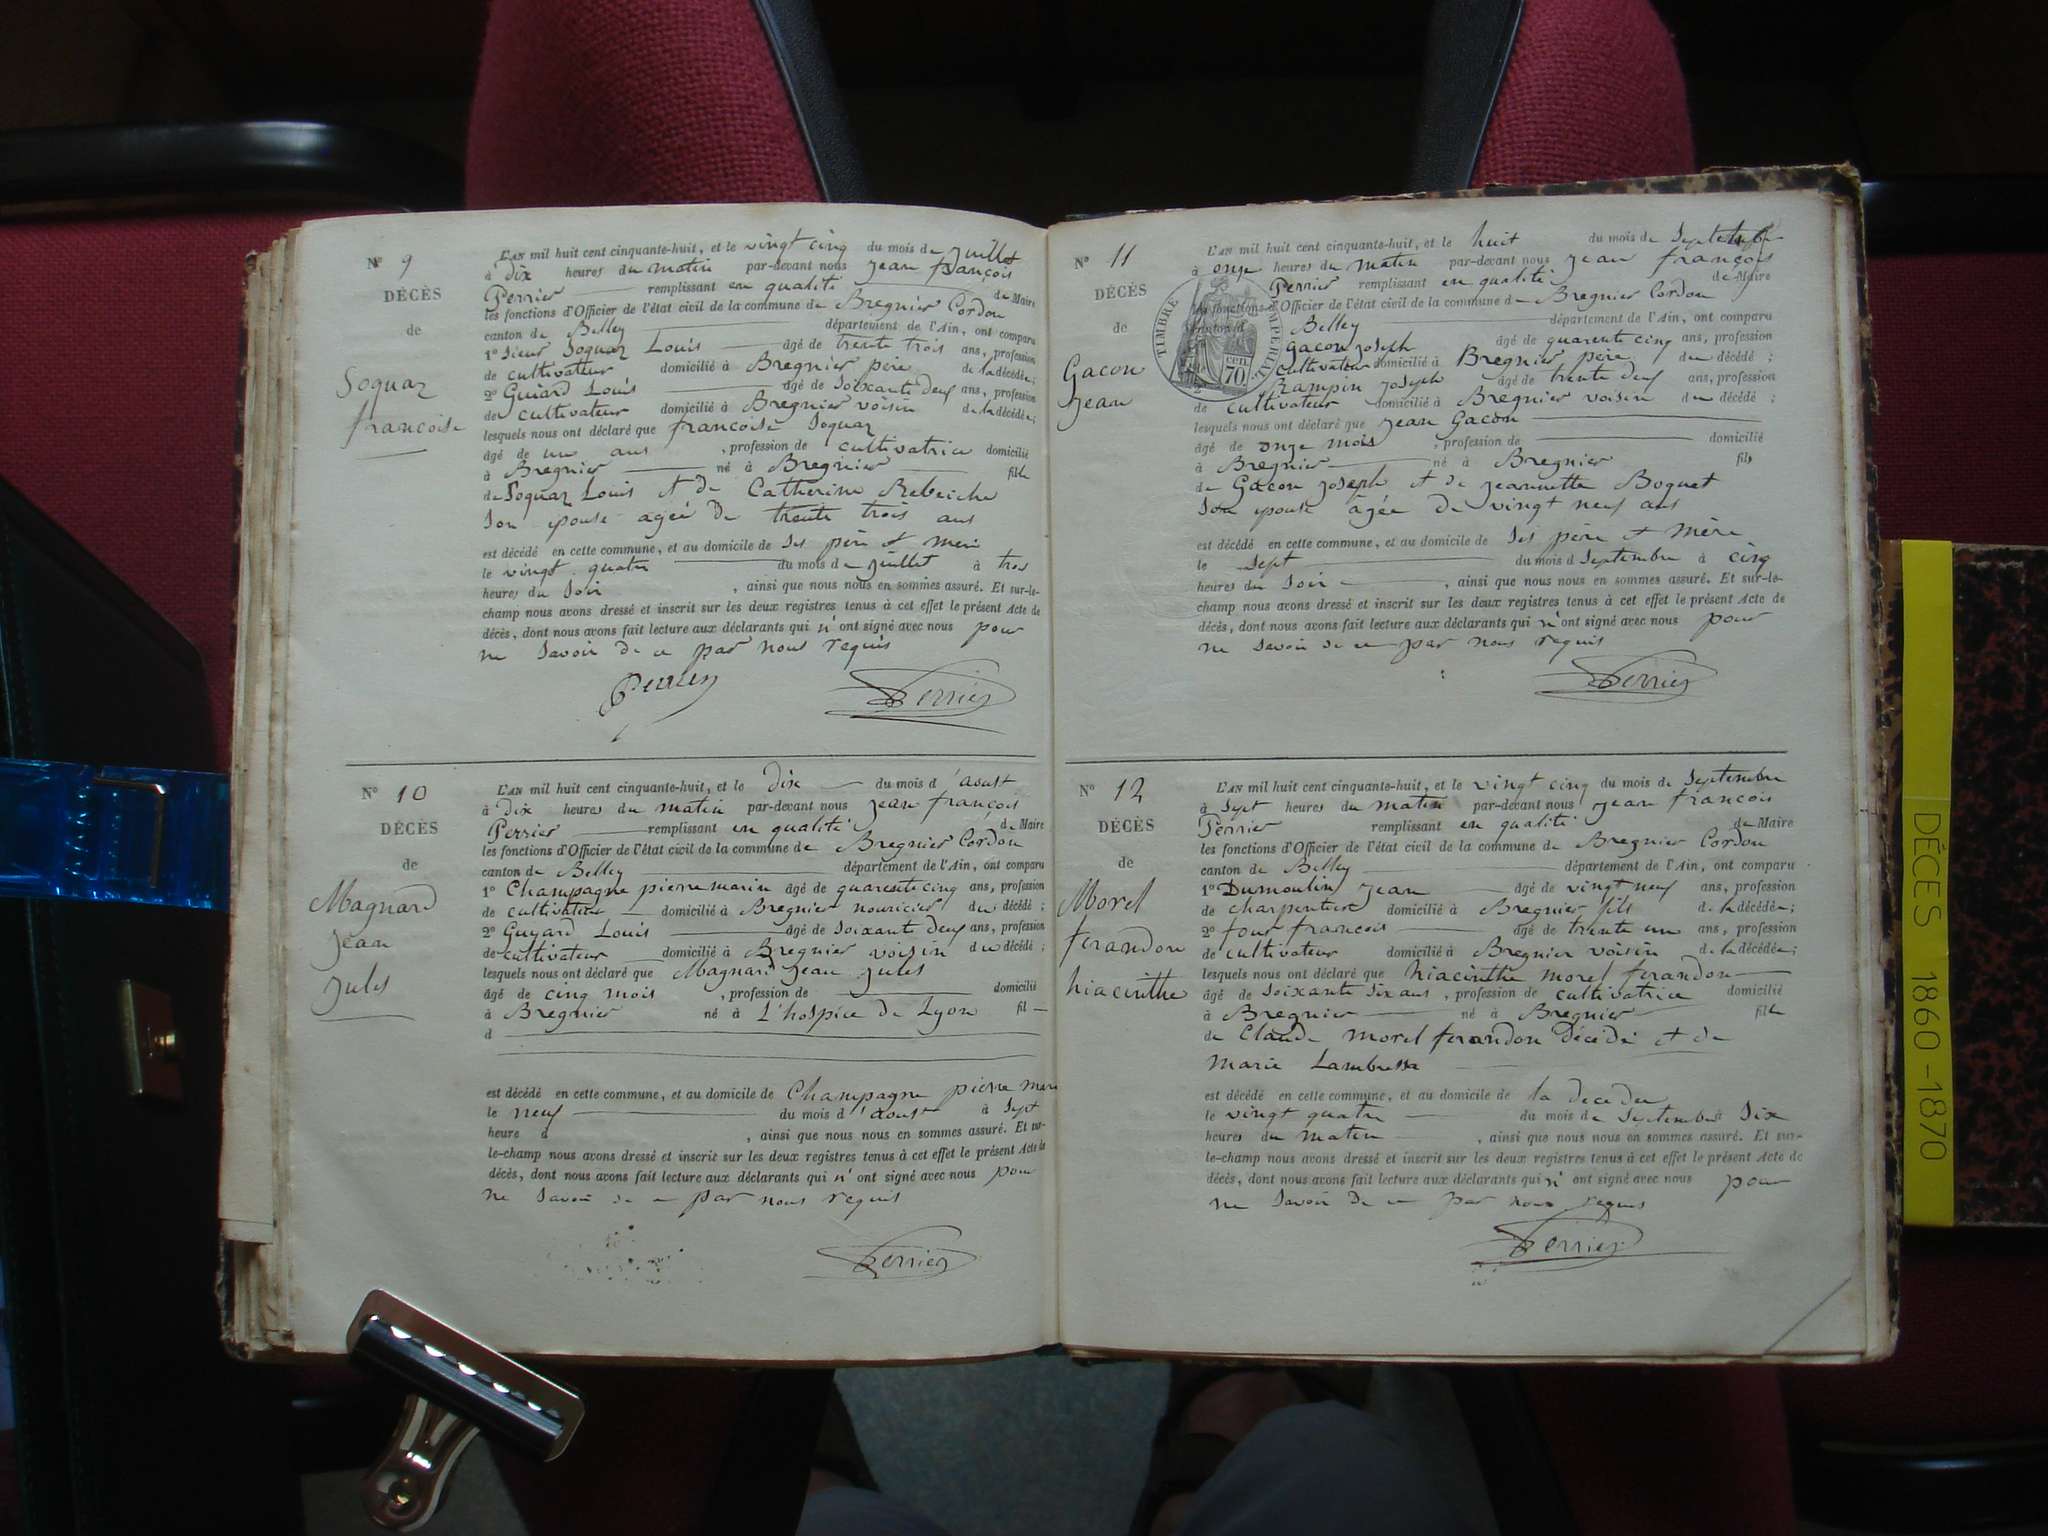 N° 9
DÉCÈS
de
Soquaz
francoise
L'AN mil huit cent cinquante-huit, et le vingt cinq du mois de juillet
à Dix heures du matin par-devant nous jean françois
Perrier remplissant en qualité de Maire
les fonctions d'Officier de l'état civil de la commune de Bregnier Cordon
canton de Belley département de l'Ain, ont comparu
1° Sieur Soquaz Louis âgé de trente trois ans, profession
de cultivateur domicilié à Bregnier père de la décédée;
2° Guiard Louis âgé de Soixante deux ans, profession
de cultivateur domicilié à Bregnier voisin de la décédée;
lesquels nous ont déclaré que francoise Soquaz
âgé de un ans, profession de cultivatrice domicilié
à Bregnier né à Bregnier fille
de Soquaz Louis et de Catherine Rebeiche
Son epouse agée de trente trois ans
est décédé en cette commune, et au domicile de ses père et mere
le vingt quatre du mois de juillet à tres
heures du Soir, ainsi que nous nous en sommes assuré. Et sur-le-
champ nous avons dressé et inscrit sur les deux registres tenus à cet effet le présent Acte de
décès, dont nous avons fait lecture aux déclarants qui n'ont signé avec nous pour
ne Savoir de ce par nous requis
Perrier
Perrier
N° 10
DÉCÈS
de
Magnard
jean
jules
L'AN mil huit cent cinquante-huit, et le dix du mois d'aoust
à Dix heures du matin par-devant nous jean françois
Perrier remplissant en qualité de Maire
les fonctions d'Officier de l'état civil de la commune de Bregnier Cordon
canton de Belley département de l'Ain, ont comparu
1° Champagne pierre marin âgé de quarente cinq ans, profession
de cultivateur domicilié à Bregnier nouricier du décédé;
2° Guyard Louis âgé de Soixante deux ans, profession
de cultivateur domicilié à Bregnier voisin du décédé;
lesquels nous ont déclaré que Magnard jean jules
âgé de cinq mois, profession de domicilié
à Bregnier né à L'hospice de Lyon fil
d
est décédé en cette commune, et au domicile de Champagne pierre mari
le neuf du mois d'aoust à Sept
heure d, ainsi que nous nous en sommes assuré. Et sur-
le-champ nous avons dressé et inscrit sur les deux registres tenus à cet effet le présent Acte de
décès, dont nous avons fait lecture aux déclarants qui n'ont signé avec nous pour
ne Savoir de ce par nous requis
Perrier
N° 11
DÉCÈS
de
Gacon
jean
TIMBRE IMPERIAL
70 cen
L'AN mil huit cent cinquante-huit, et le huit du mois de Septembre
à onze heures du matin par-devant nous jean françois
Perrier remplissant en qualité de Maire
les fonctions d'Officier de l'état civil de la commune de Bregnier Cordon
canton de Belley département de l'Ain, ont comparu
gacon joseph âgé de quarente cinq ans, profession
cultivateur domicilié à Bregnier père du décédé;
2° Rampin joseph âgé de trente deux ans, profession
de cultivateur domicilié à Bregnier voisin du décédé;
lesquels nous ont déclaré que jean Gacon
âgé de onze mois, profession de domicilié
à Bregnier né à Bregnier fils
de Gacon joseph et de jeannette Boquet
Son epouse âgée de vingt neuf ans
est décédé en cette commune, et au domicile de Ses père et mère
le Sept du mois d Septembre à cinq
heures du Soir, ainsi que nous nous en sommes assuré. Et sur-le-
champ nous avons dressé et inscrit sur les deux registres tenus à cet effet le présent Acte de
décès, dont nous avons fait lecture aux déclarants qui n'ont signé avec nous pour
ne Savoir de ce par nous requis
Perrier
N° 12
DÉCÈS
de
Morel
ferandon
hiacinthe
L'AN mil huit cent cinquante-huit, et le vingt cinq du mois de Septembre
à Sept heures du matin par-devant nous jean francois
Perrier remplissant en qualité de Maire
les fonctions d'Officier de l'état civil de la commune de Bregnier Cordon
canton de Belley département de l'Ain, ont comparu
1° Dumoulin jean âgé de vingt neuf ans, profession
de charpentier domicilié à Bregnier fils de la décédée;
2° four francois âgé de trente un ans, profession
de cultivateur domicilié à Bregnier voisin de la décédée;
lesquels nous ont déclaré que hiacinthe morel ferandon
âgé de Soixante Six ans, profession de cultivatrice domicilié
à Bregnier né à Bregnier fille
de Claude morel ferandon Décédé et de
marie Lambressa
est décédé en cette commune, et au domicile de la decedée
le vingt quatre du mois de Septembre à Six
heures du matin, ainsi que nous nous en sommes assuré. Et sur-
le-champ nous avons dressé et inscrit sur les deux registres tenus à cet effet le présent Acte de
décès, dont nous avons fait lecture aux déclarants qui n'ont signé avec nous pour
ne Savoir de ce par nous requis
Perrier
DÉCES 1860-1870